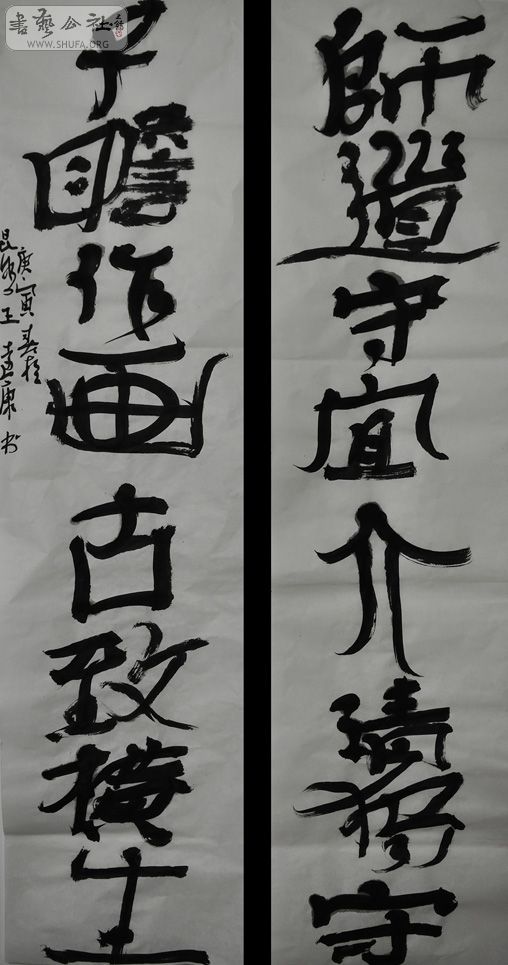 師道守宜介靖獨守
子瞻作画古致横生
庚寅春於
王康书
書藝公社
WWW.SHUFA.ORG